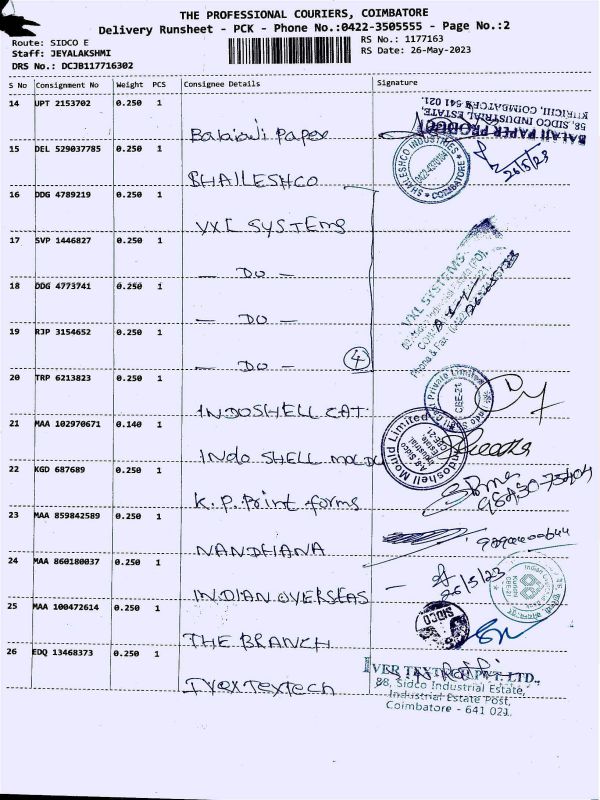 THE PROFESSIONAL COURIERS, COIMBATORE
Delivery Runsheet - PCK - Phone No.:0422-3505555 - Page No.:2
Route: SIDCO E
Staff: JEYALAKSHMI
DRS No.: DCJB117716302
RS No.: 1177163
RS Date: 26-May-2023
S No Consignment No Weight PCS Consignee Details Signature
14 UPT 2153702 0.250 1
Paper
BALAJI PAPER PRODUCT
58, SIDCO INDUSTRIAL ESTATE,
KURICHI, COIMBATORE 641 021.
15 DEL 529037785 0.250 1
BHAILESHCO
BHAILESHCO INDUSTRIES
COIMBATORE
26/5/23
16 DDG 4789219 0.250 1
VXL SYSTEMS
17 SVP 1446827 0.250 1
— DO —
VXL SYSTEMS
18 DDG 4773741 0.250 1
— DO —
19 RJP 3154652 0.250 1
— DO — 4
20 TRP 6213823 0.250 1
INDOSHELL CAT
Private Limited
CBE-21
21 MAA 102970671 0.140 1
Indo SHELL MOLD
Indoshell Mould Limited
A-9 Sidco
Industrial
Estate
CBE-21.
22 KGD 687689 0.250 1
K.P. Print forms
23 MAA 859842589 0.250 1
NANDHANA
24 MAA 860180037 0.250 1
INDIAN OVERSEAS
26/5/23
25 MAA 100472614 0.250 1
THE BRANCH
SIDCO
26 EDQ 13468373 0.250 1
88, Sidco Industrial Estate,
Industrial Estate Post,
Coimbatore - 641 021.